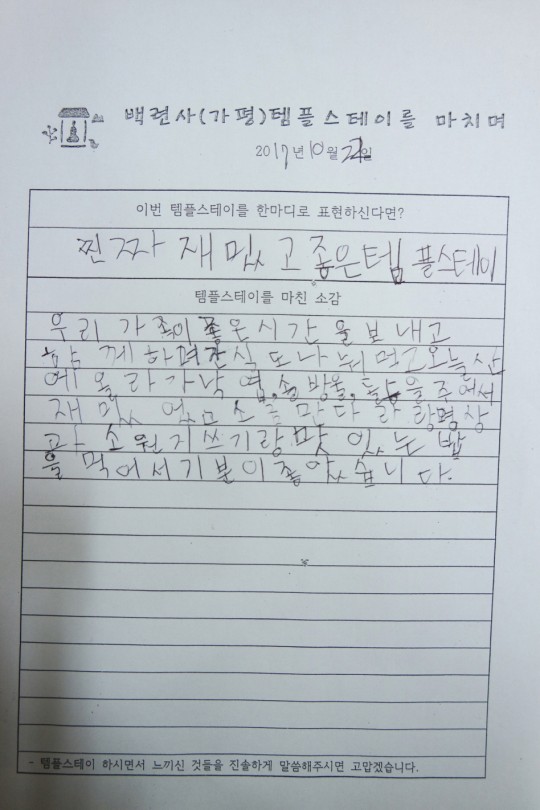 백련사(가평)템플스테이를 마치며
2017년 10월 22일
이번 템플스테이를 한마디로 표현하신다면?
찐짜 재밌고 좋은템플스테이
템플스테이를 마친 소감
우리 가족이 좋은시간을 보내고
함께하며간식도나눠먹고오늘산
에올라가낙엽,솔방울,돌을주에서
재밌었
과 소원지쓰기랑맛있는밥
을 먹어서기분이좋았습니다.
- 템플스테이 하시면서 느끼신 것들을 진솔하게 말씀해주시면 고맙겠습니다.